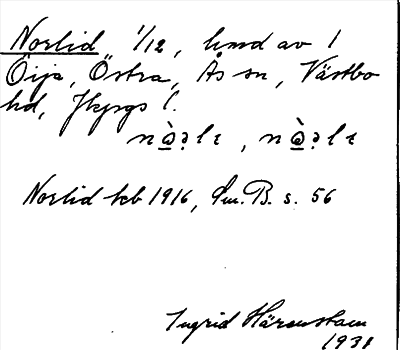 Norlid, 1/12, hmd av 1
Öija, Östra, Ås sn, Västbo
hd, Jkpgs l.
Norlid kb 1916, Sm. B. s. 56
Ingrid Härenstam
1931